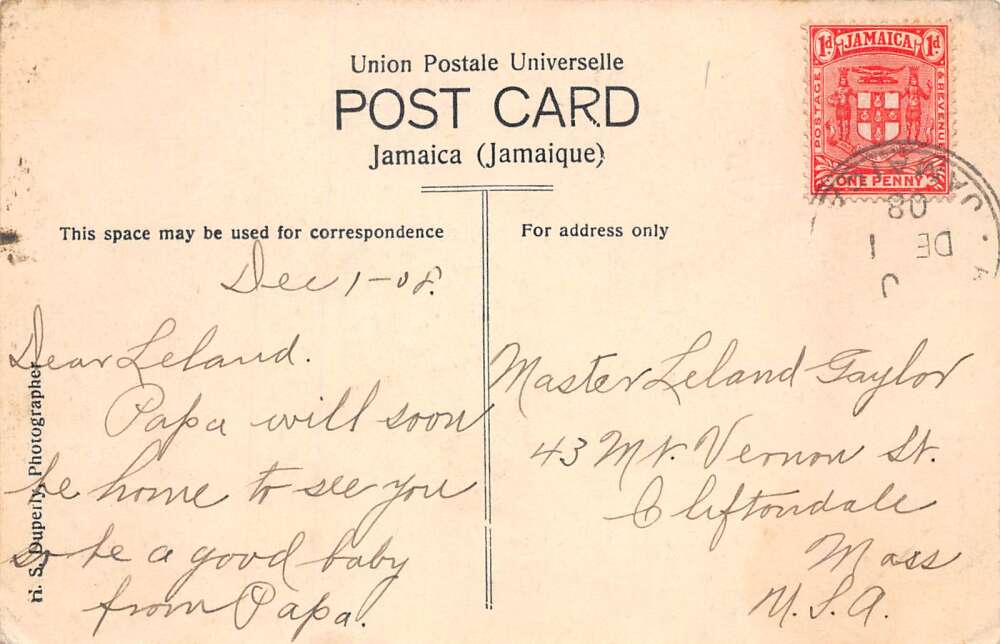 Union Postale Universelle
POST CARD
Jamaica (Jamaique)
1d JAMAICA 1d
POSTAGE & REVENUE
ONE PENNY
JAMAICA
08
DE 1
This space may be used for correspondence
For address only
Dec 1-08.
Dear Leland.
Papa will soon
be home to see you
so be a good baby
from Papa.
Master Leland Taylor
43 Mt. Vernon St.
Cliftondale
Mass
U.S.A.
H. S. Duperly, Photographer